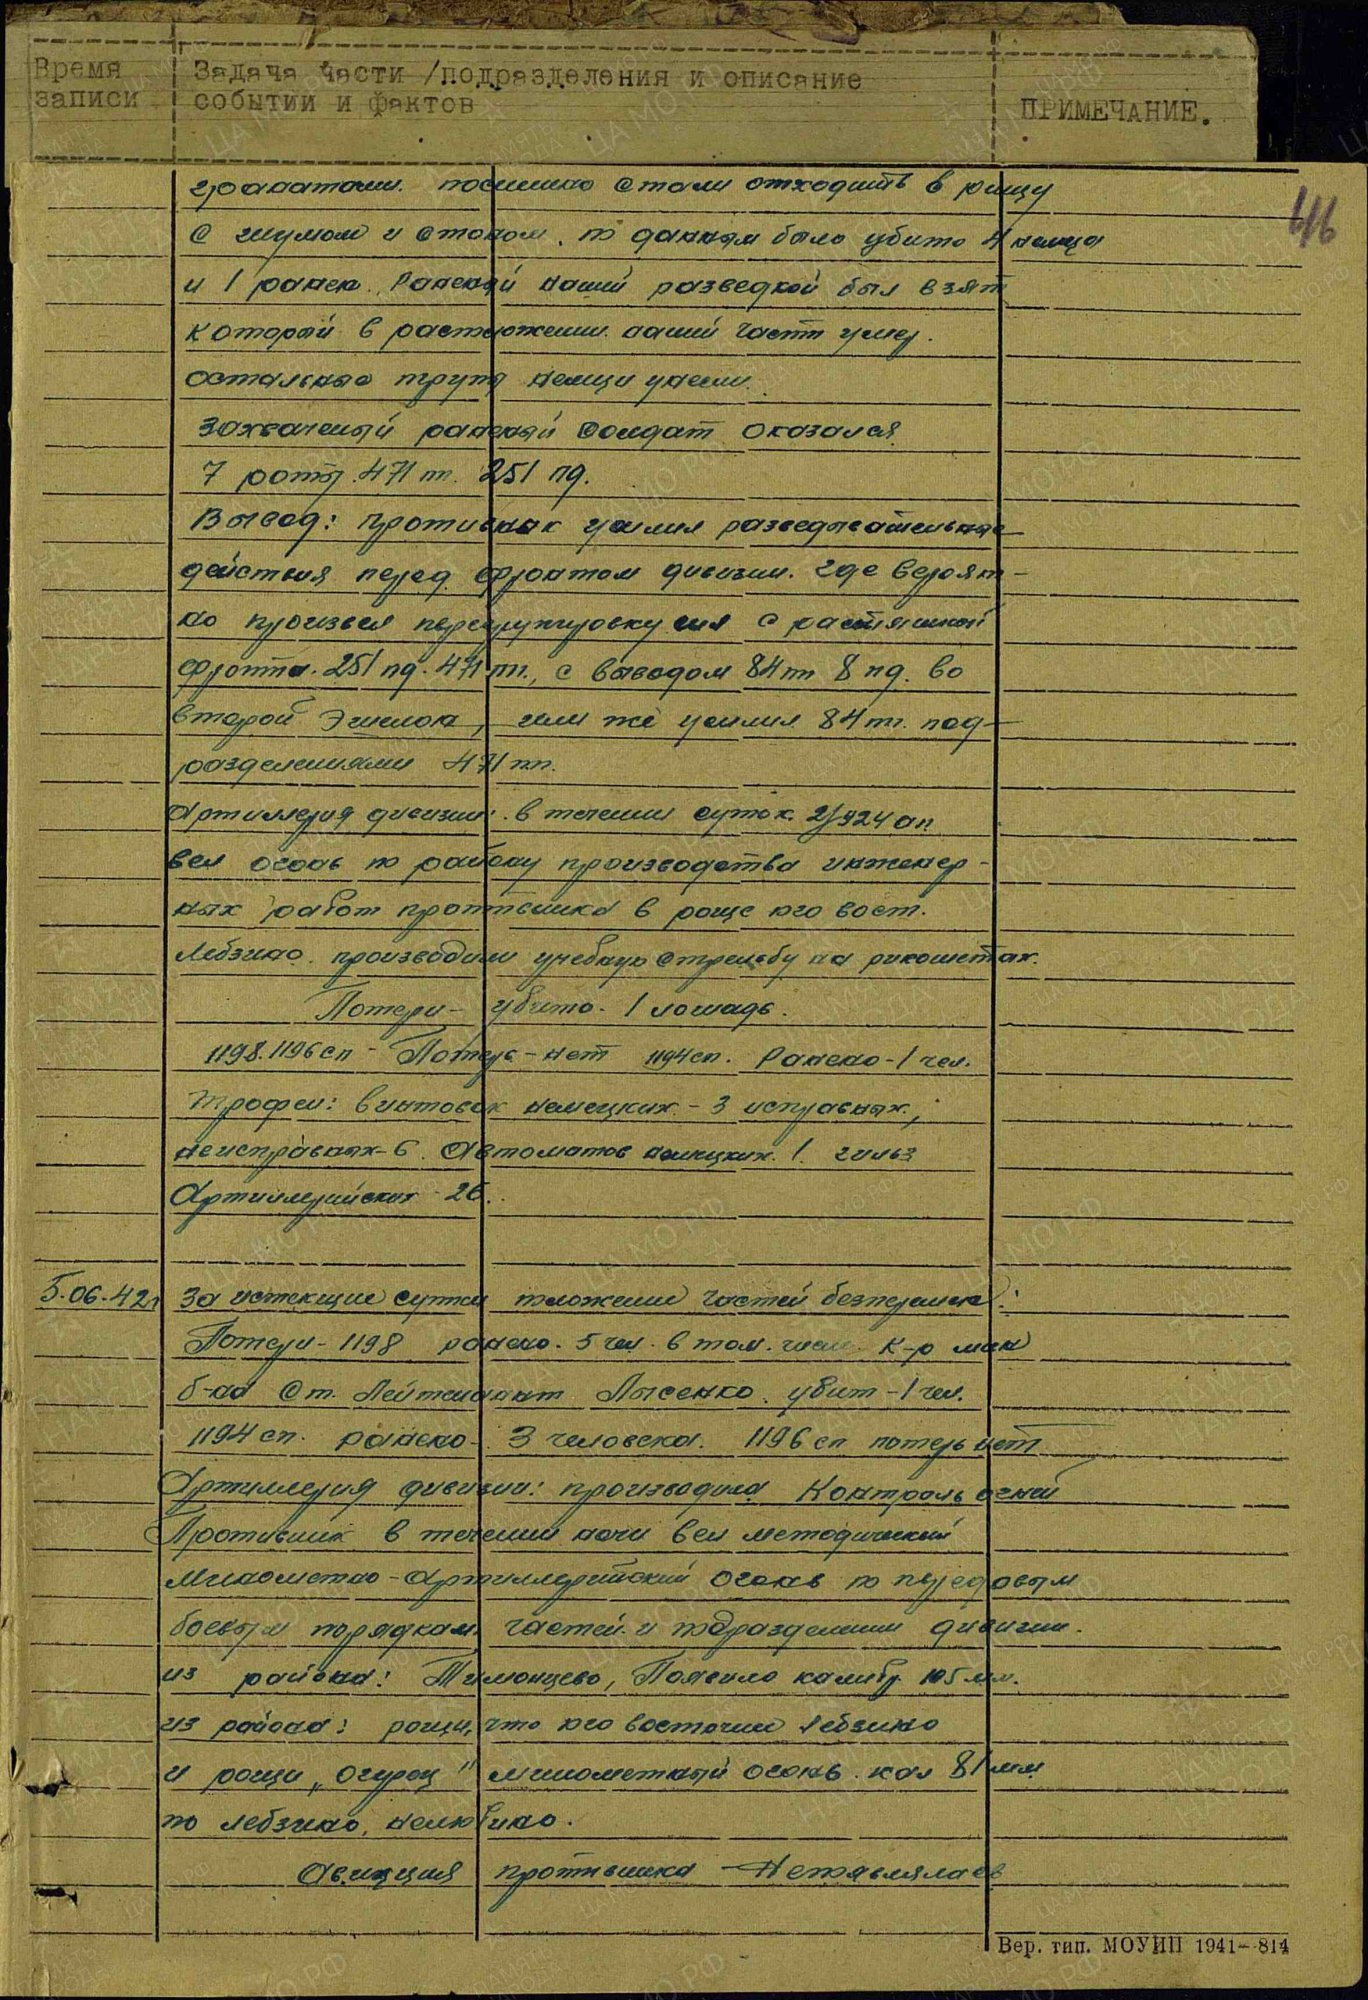 Время записи
Задача части /подразделения и описание
событий и фактов
ПРИМЕЧАНИЕ.
46
гранатами. поспешно стали отходить в рощу
с шумом и стоном. по данным было убито 4 немца
и 1 ранен. Раненый нашей разведкой был взят
который в расположении нашей части умер.
остальные трупы немцы унесли.
Захваченный раненый солдат оказался
7 роты 471 пп. 251 пд.
Вывод: противник усилил разведывательные
действия перед фронтом дивизии. где вероят-
но произвел перегруппировку сил с растяжкой
фронта. 251 пд. 471 пп., с выводом 84 пп 8 пд. во
второй эшелон, или же усилил 84 пп. под-
разделениями 471 пп.
Артиллерия дивизии: в течении суток. 2/924 ап
вел огонь по району производства инженер-
ных работ противника в роще юго вост.
Лебзино. производили учебную стрельбу на рикошетах.
Потери - убито - 1 лошадь.
1198. 1196 сп - Потерь - нет 1194 сп. Ранено - 1 чел.
Трофеи: винтовок немецких - 3 исправных,
неисправных - 6. Автоматов немецких 1. гильз
Артиллерийских - 26.
5.06.42г За истекшие сутки положение частей без перемен.
Потери - 1198 ранено. 5 чел. в том. числе. к-р мин
б-на Ст. Лейтенант Лысенко. убит - 1 чел.
1194 сп. ранено - 3 человека. 1196 сп потерь нет
Артиллерия дивизии: производила Контроль огней
Противник в течении ночи вел методический
минометно - артиллерийский огонь по передовым
боевым порядкам частей и подразделений дивизии.
из района: Тимонцево, калибр 105 мм.
из района: рощи, что юго восточнее Лебзино
и рощи „Огурец" минометный огонь. кал 81 мм
по Лебзино, Нелюбино.
Авиация противника - Не появлялась
Вер. тип. МОУИП 1941-814